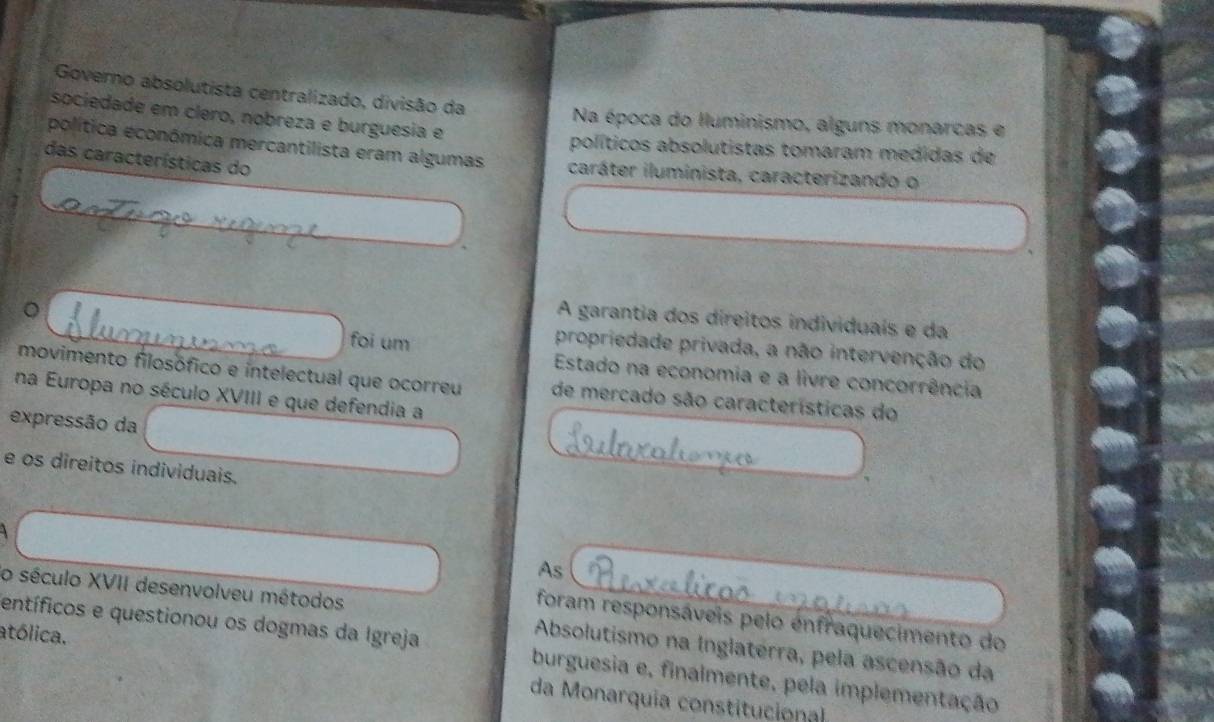 Governo absolutista centralizado, divisão da
sociedade em clero, nobreza e burguesia e
política econômica mercantilista eram algumas
das características do
antigo regime.
O Iluminismo foi um
movimento filosófico e intelectual que ocorreu
na Europa no século XVIII e que defendia a
expressão da
e os direitos individuais.
A
o século XVII desenvolveu métodos
entíficos e questionou os dogmas da Igreja
atólica.
Na época do Iluminismo, alguns monarcas e
políticos absolutistas tomaram medidas de
caráter iluminista, caracterizando o
.
A garantia dos direitos individuais e da
propriedade privada, a não intervenção do
Estado na economia e a livre concorrência
de mercado são características do
.
As
foram responsáveis pelo enfraquecimento do
Absolutismo na Inglaterra, pela ascensão da
burguesia e, finalmente, pela implementação
da Monarquia constitucional